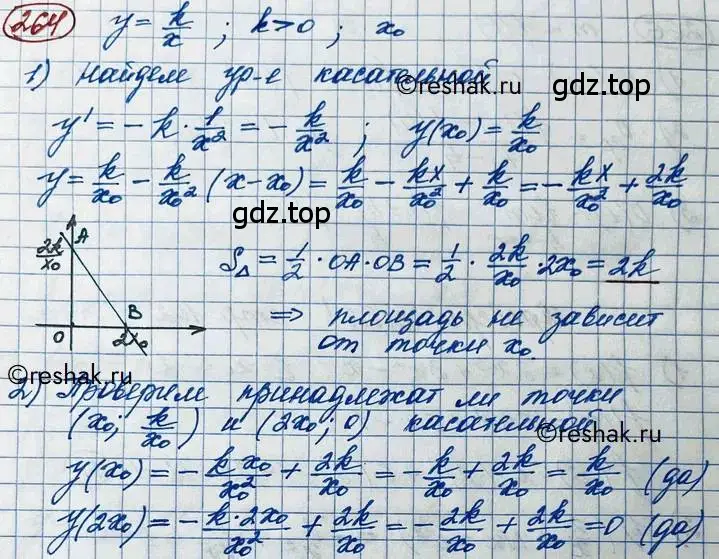 264 y = k/x ; k>0 ; x₀
1) Найдем ур-е касательной
©reshak.ru
gdz.top
y' = -k · 1/x² = -k/x² ; y(x₀) = k/x₀
y = k/x₀ - k/x₀² (x-x₀) = k/x₀ - kx/x₀² + k/x₀ = -kx/x₀² + 2k/x₀
gdz.top
2k/x₀ A
S△ = 1/2 · OA · OB = 1/2 · 2k/x₀ · 2x₀ = 2k
B
0 2x₀
⇒ площадь не зависит
от точки x₀.
©reshak.ru
2) Проверим принадлежат ли точки
(x₀; k/x₀) и (2x₀; 0) касательной
©reshak.ru
y(x₀) = -k x₀/x₀² + 2k/x₀ = -k/x₀ + 2k/x₀ = k/x₀ (да)
y(2x₀) = -k·2x₀/x₀² + 2k/x₀ = -2k/x₀ + 2k/x₀ = 0 (да)